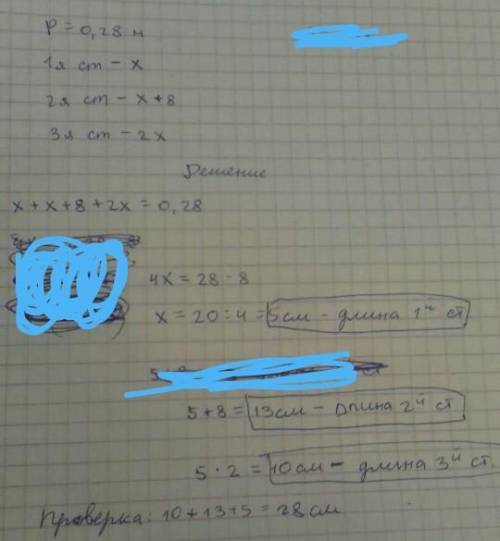 P = 0,28 м
1я ст - х
2я ст - х+8
3я ст - 2х
Решение
х + х + 8 + 2х = 0,28
4х = 28 - 8
х = 20 : 4 = 5см - длина 1й ст
5 + 8 = 13см - длина 2й ст
5 · 2 = 10см - длина 3й ст.
Проверка: 10 + 13 + 5 = 28 см